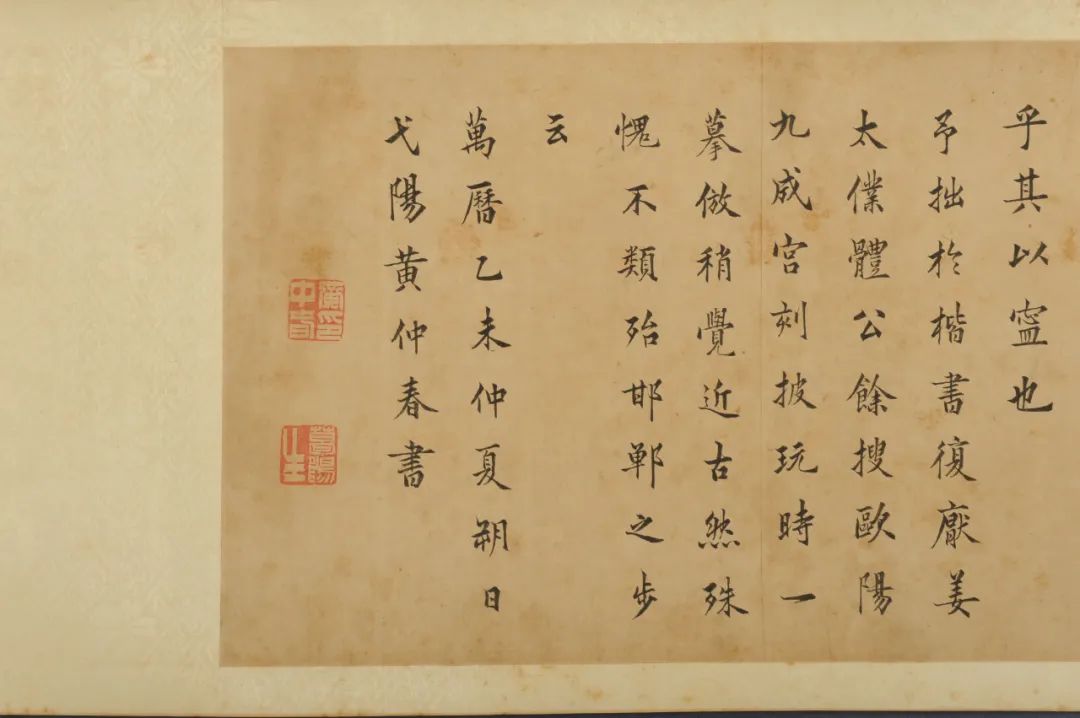 乎其以寍也
予拙於楷書復厭姜
太僕體公餘搜歐陽
九成宮刻披玩時一
摹倣稍覺近古然殊
愧不類殆邯鄲之步
云
萬曆乙未仲夏朔日
弋陽黃仲春書